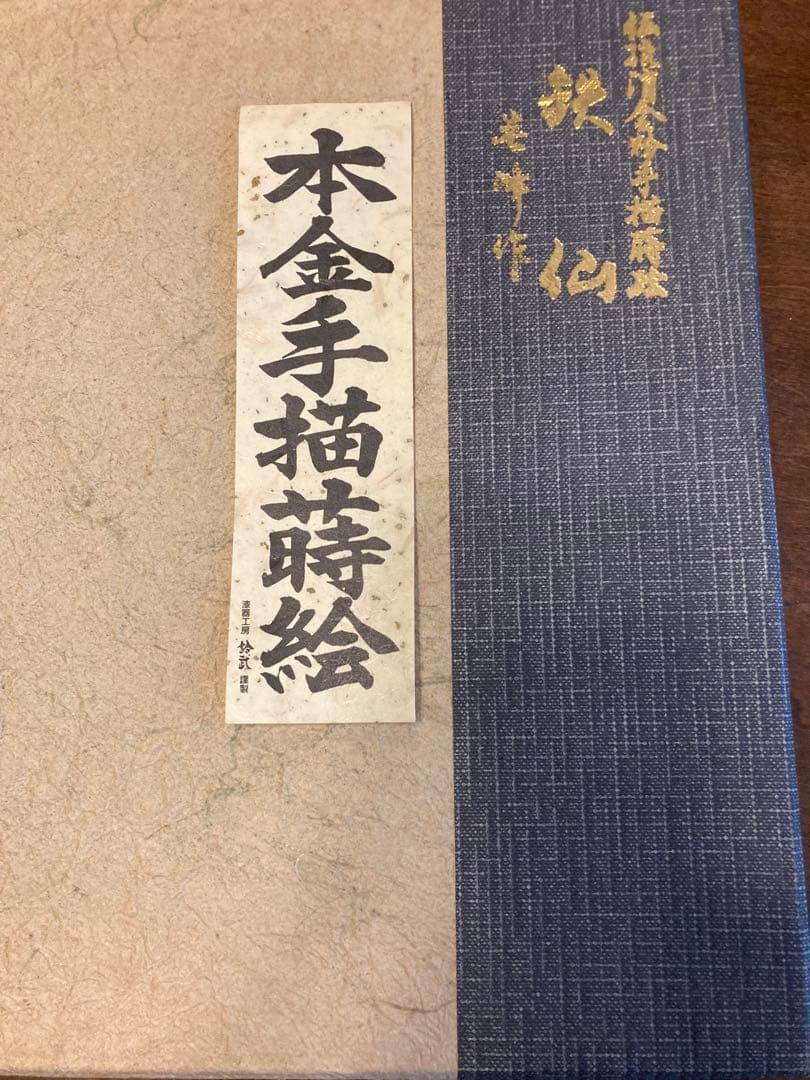 伝統洋金粉手描蒔絵
鉄仙
峰作
本金手描蒔絵
漆器工房 鈴武 謹製